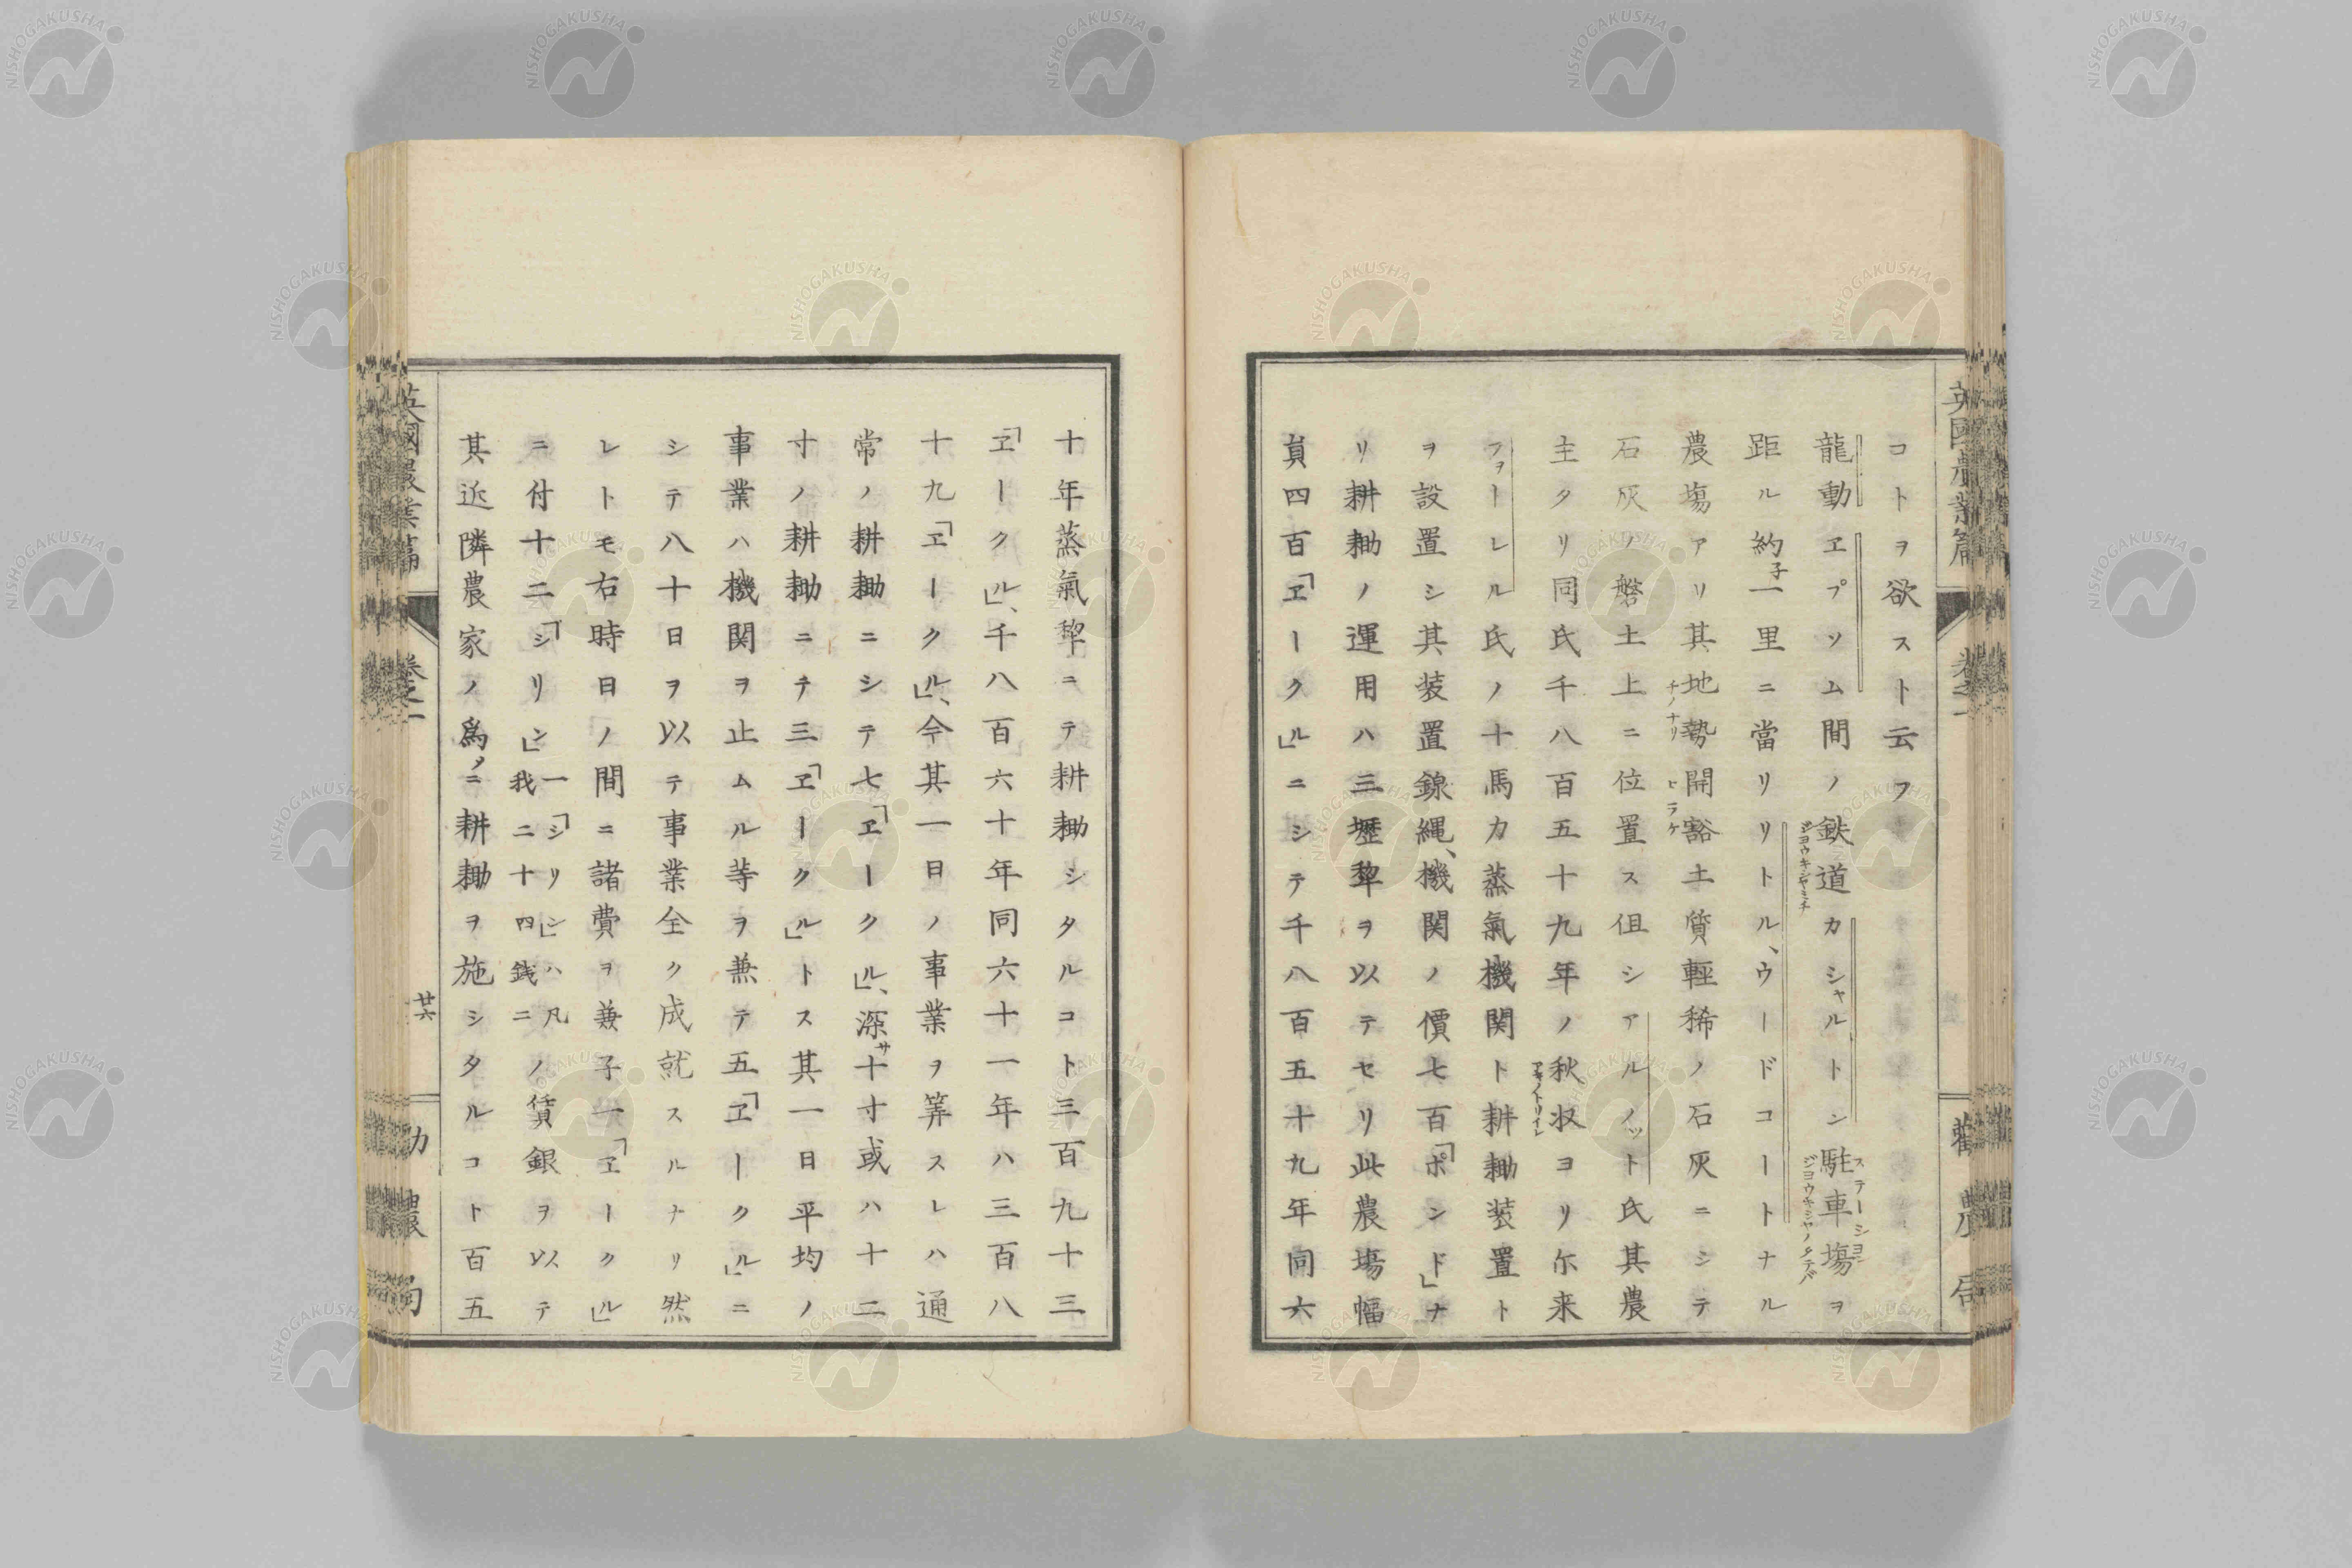 英國農業篇 卷之一 勸農局
コトヲ欲スト云フ
龍動ヱプソム間ノ鉄道カシャルトン駐車塲ヲ
ジヨウキシヤミチ
ステーシヨン
ジヨウキシヤノタテバ
距ル約子一里ニ當リリトル、ウードコートナル
農塲アリ其地勢開豁土質輕稀ノ石灰ニシテ
チノナリ ヒラケ
石灰ノ磐土上ニ位置ス但シアルノット氏其農
主タリ同氏千八百五十九年ノ秋収ヨリ尓来
アキノトリイレ
フヲーレル氏ノ十馬力蒸氣機関ト耕耡装置ト
ヲ設置シ其装置鎳縄、機関ノ價七百「ポンド」ナ
リ耕耡ノ運用ハ三壢犂ヲ以テセリ此農塲幅
員四百「ヱークル」ニシテ千八百五十九年同六
十年蒸氣犂ニテ耕耡シタルコト三百九十三
「ヱークル」、千八百六十年同六十一年ハ三百八
十九「ヱークル」、今其一日ノ事業ヲ筭スレハ通
常ノ耕耡ニシテ七「ヱークル」、深サ十寸或ハ十二
寸ノ耕耡ニテ三「ヱークル」トス其一日平均ノ
事業ハ機関ヲ止ムル等ヲ兼テ五「ヱークル」ニ
シテ八十日ヲ以テ事業全ク成就スルナリ然
レトモ右時日ノ間ニ諸費ヲ兼子一「ヱークル」
ニ付十二「シリン」一「シリン」ハ凡我二十四銭ニノ賃銀ヲ以テ
其近隣農家ノ爲メニ耕耡ヲ施シタルコト百五
英國農業篇 卷之一 廿六 勸農局
NISHOGAKUSHA